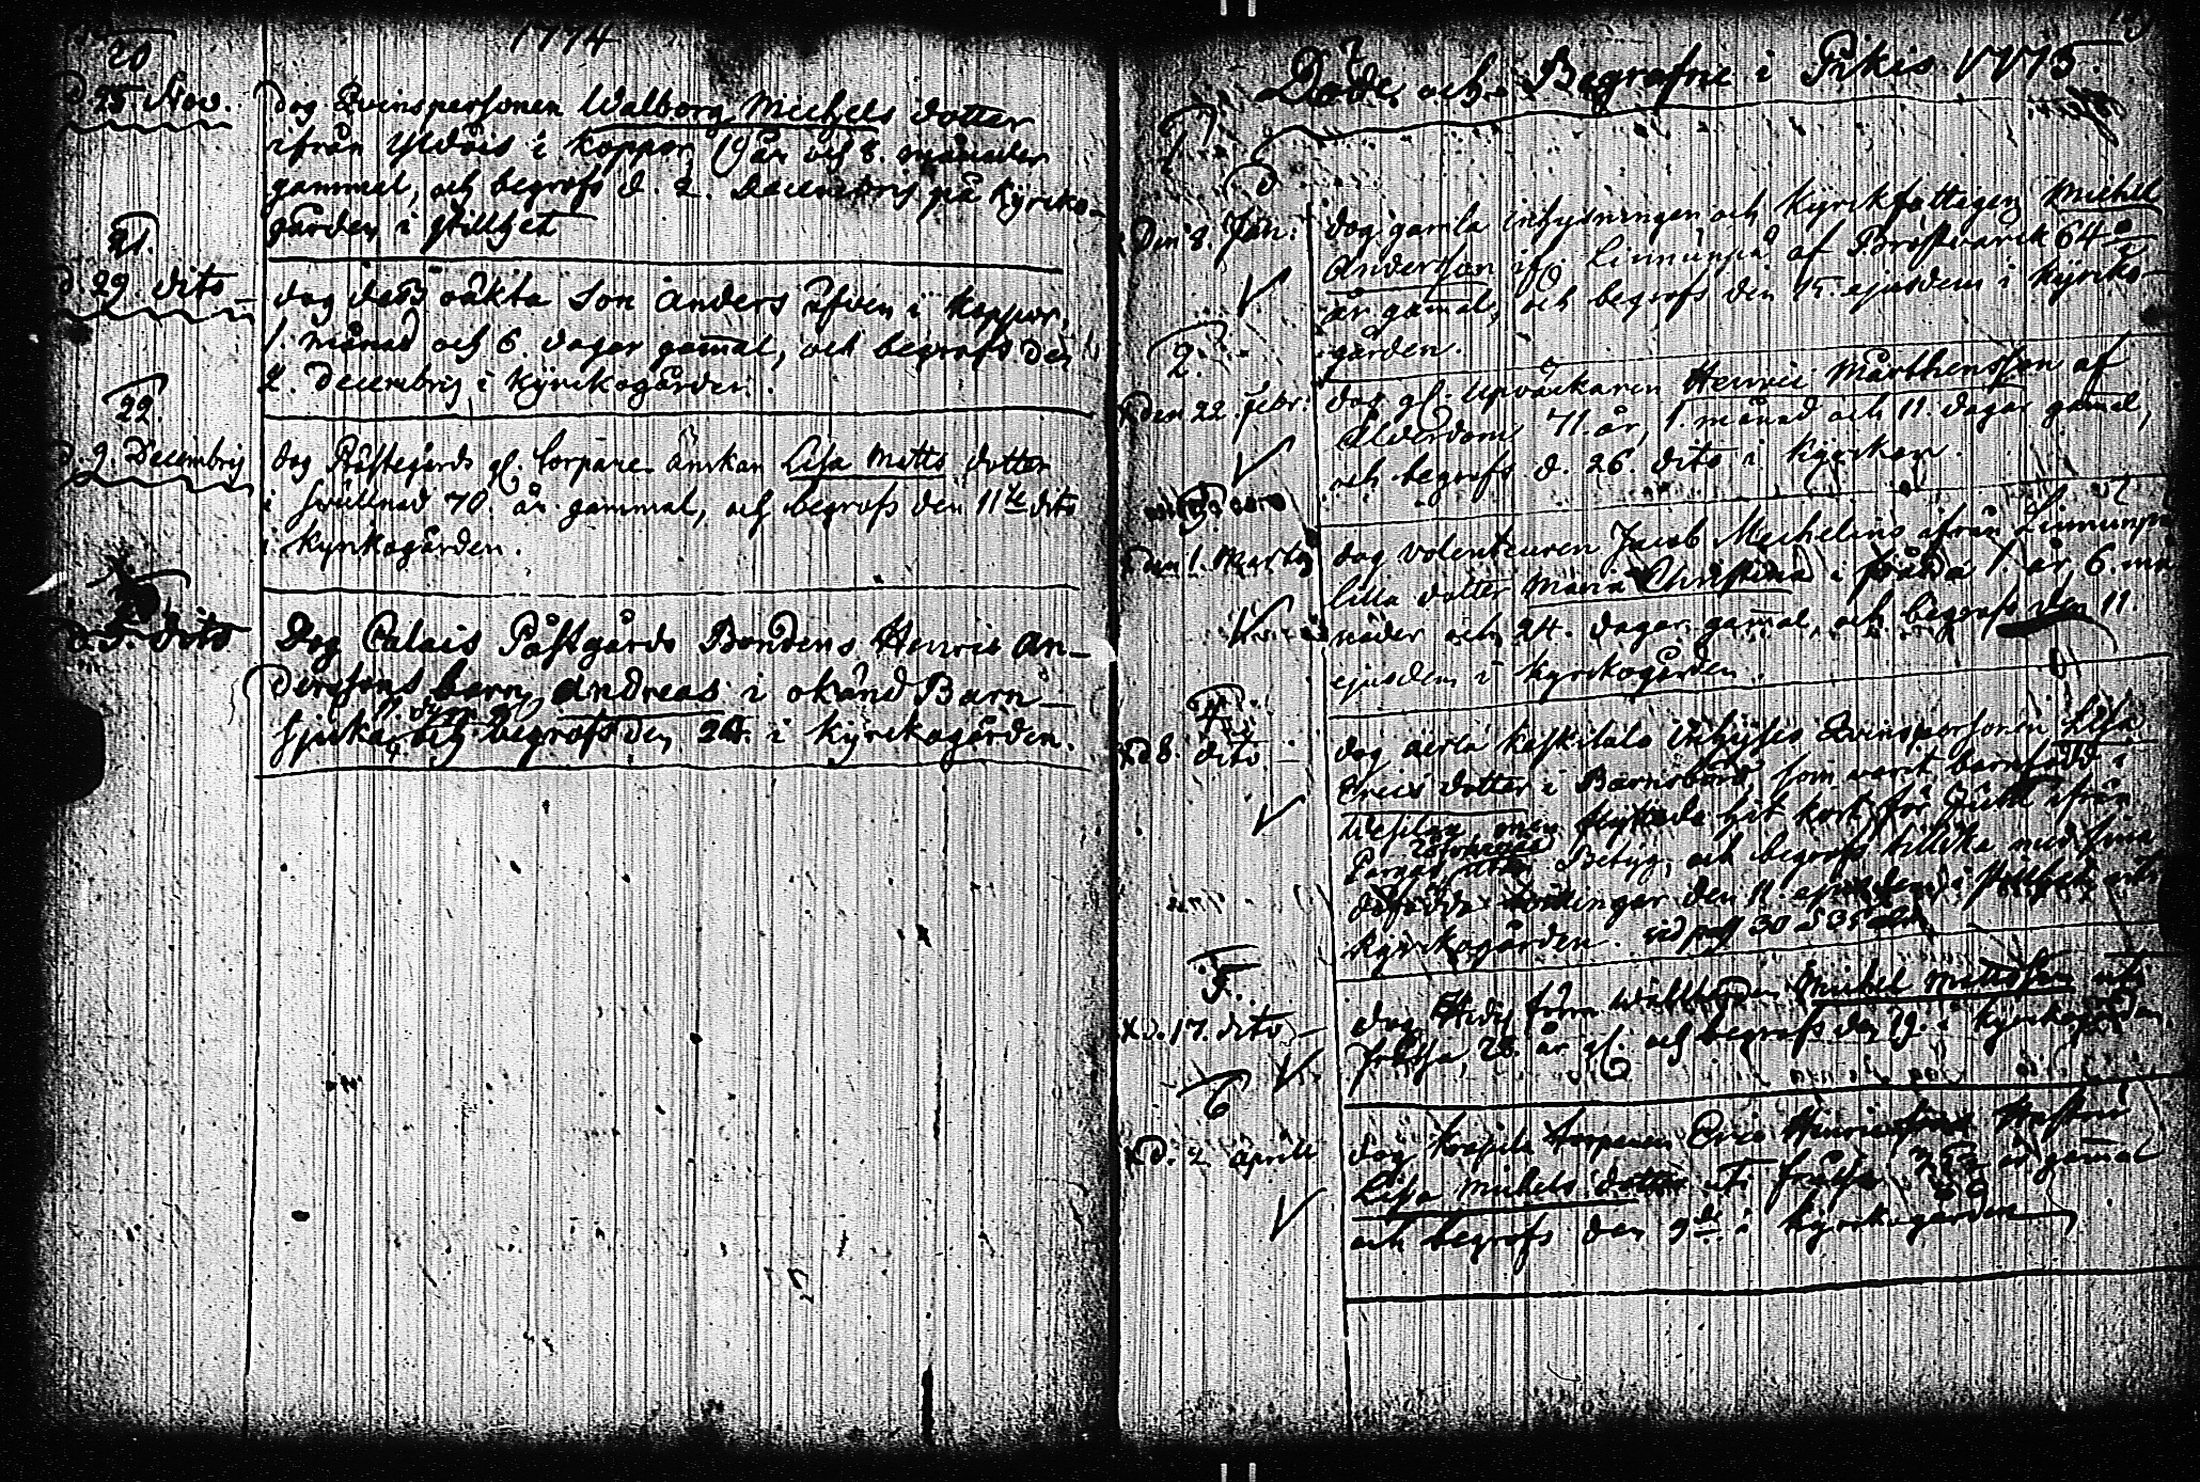 1774
20
d. 25 Nov. dog Qvinspersonen Walborg Michels dotter
ifrån Yldöis i koppor, 19 år och 8. månader
gammal, och begrofs d. 2. Decembris på Kyrko-
gården i stillhet
21.
d. 29. dito dog dess oäkta Son Anders äfven i koppor,
1. månad och 6. dagar gamal, och begrofs den
2. Decembris i kyrckogården.
22.
d. 9. Decembris dog Påstegårds gl. torpare Änckan Lisa Matts dotter
i swullnad 70. år gammal, och begrofs den 11te dito
i kyrkogården.
d. 5. dito Dog Calais Påstgårds Bondens Henric An-
derssons barn Andreas i okänd Barn
sjuka, och begrofs den 26. i kyrckogården.
Döde och Begrafne i Pikis 1775.
1.
Den 8. Jan: dog gamla inhysningen och kyrkfattigen Michel
Andersson ifr. Linnunpä af Bröstvärk 64
år gamal, och begrofs den 15. ejusdem i kyrko-
gården.
2.
den 22. Febr: dog gl. Upväckaren Henric Mårthensson af
Ålderdom 71. år, 1. månad och 11. dagar gamal,
och begrofs d. 26. dito i kyrkan.
3.
den 1. Marty dog volenteuren Jacob Mechelins ifrån Linnunpä
lilla dotter Maria Christina i 1. år, 6. må
nader och 24. dagar gamal, och begrofs den 11.
ejusdem i kyrkogården.
4.
d 8. dito dog Qvinspersonen Lisa
Erics dotter i Barnsbörd, som varit barnfödd i
men flyttade hit kort för Juhl ifrån
Pargas Betyg, och begrofs tillika med sina
den 11. ejusdem i stillhet uti
kyrckogården.
5.
d. 17. dito dog Michel Mattsson uti
Fråssa, 28. år gl. och begrofs den 19. i kyrckogården
6
d. 2 Aprill dog torparen Eric Henricsons Hustru
Lisa Michels dotter i fråssa år gamal
och begrofs den 9de i kyrckogården